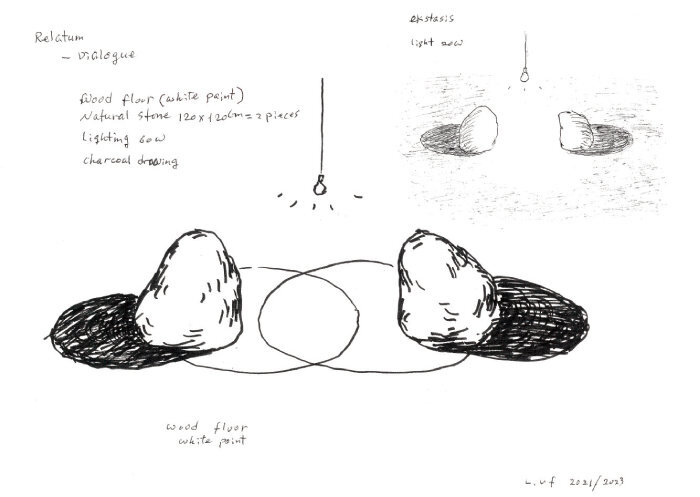 Relatum
– Dialogue
Wood floor (white paint)
Natural Stone 120 x 120cm = 2 pieces
Lighting 60W
charcoal drawing
ekstasis
light 20W
wood floor
white paint
L. Uf 2021/2023